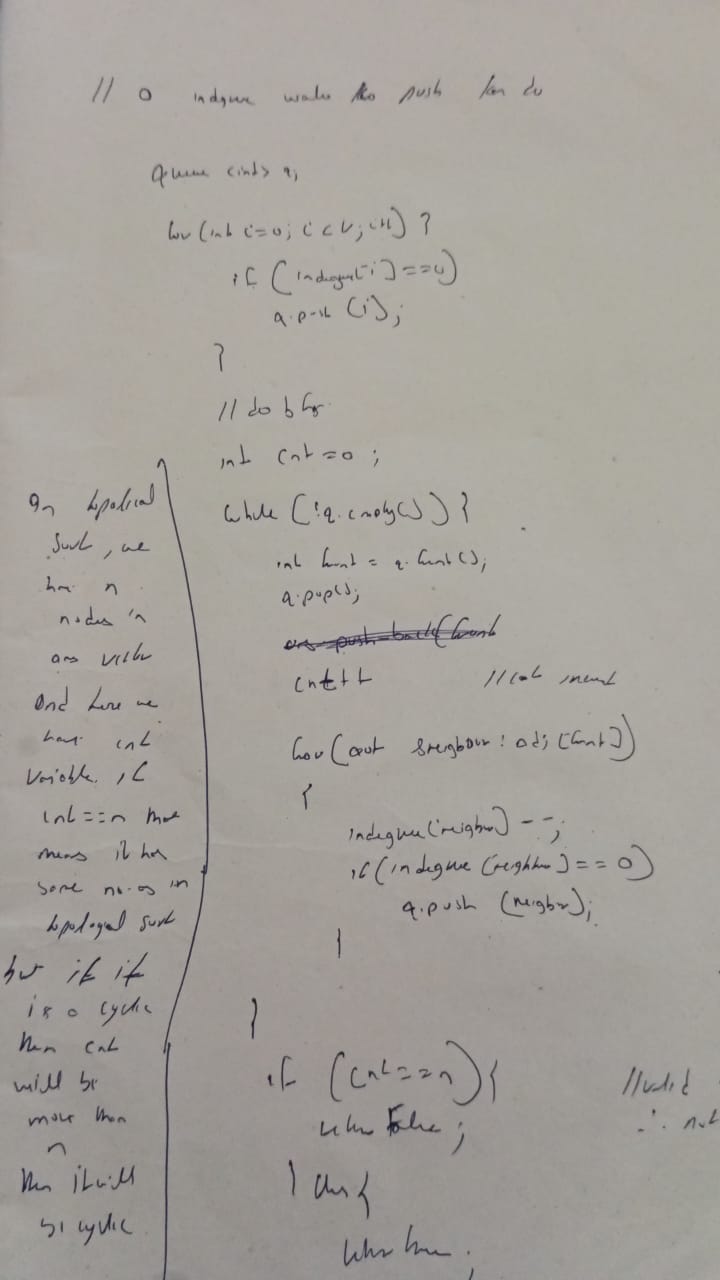 // 0 indegree wale ko push kar do
queue <int> q;
for (int i=0; i<V; i++) {
if (indegree[i]==0)
q.push (i);
}
// do bfs
int cnt=0;
while (!q.empty()) {
int front = q.front();
q.pop();
ans.push-back(front
cnt++
// cnt
for (auto &neighbour : adj[front])
{
indegree[neighbor]--;
if (indegree[neighbor]==0)
q.push (neighbor);
}
}
if (cnt==n) {
return False;
} else {
return true;
// valid
∴ not
In topolical
sort, we
have n
nodes in
ans vector
And here we
have cnt
variable, if
cnt==n that
means it has
same no. of in
topological sort
but if it
is a cyclic
then cnt
will be
more than
n
then it will
be cyclic